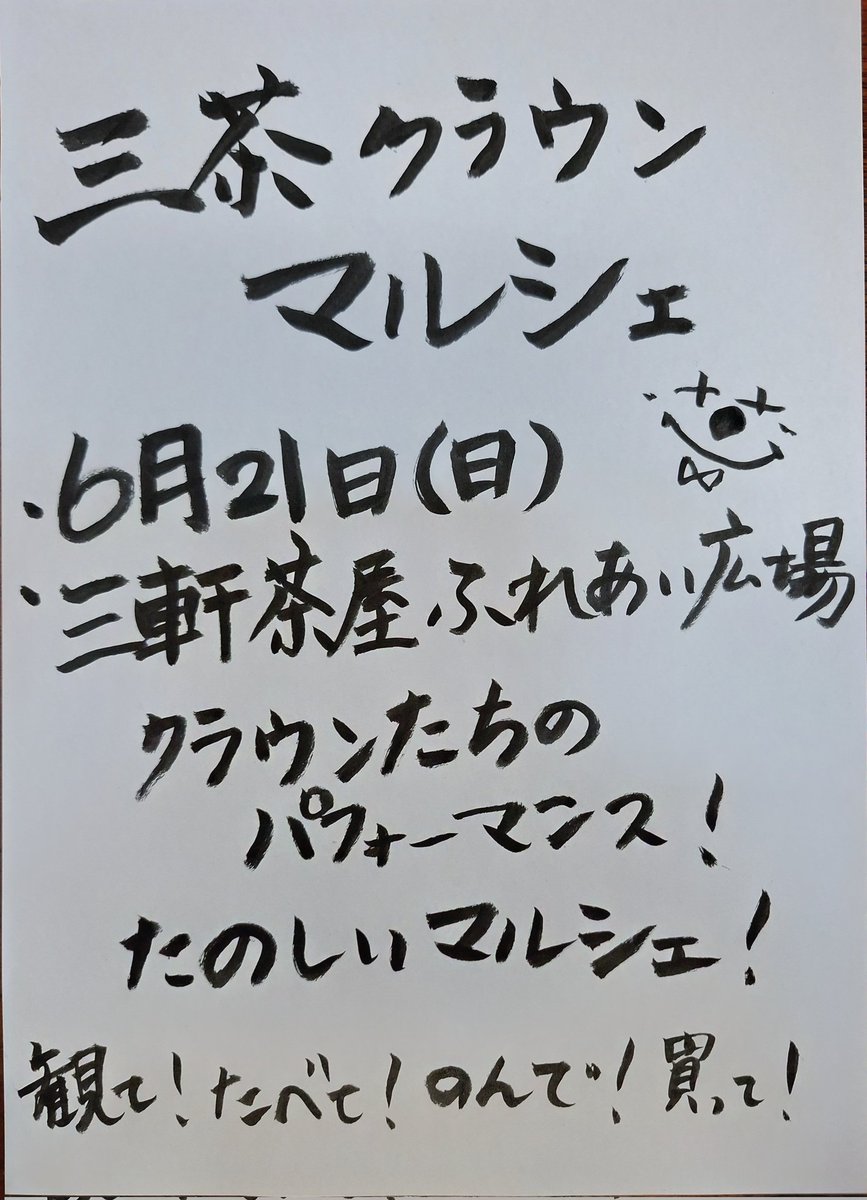 三茶クラウン
マルシェ
・6月21日(日)
・三軒茶屋ふれあい広場
クラウンたちの
パフォーマンス!
たのしいマルシェ!
観て!たべて!のんで!買って!